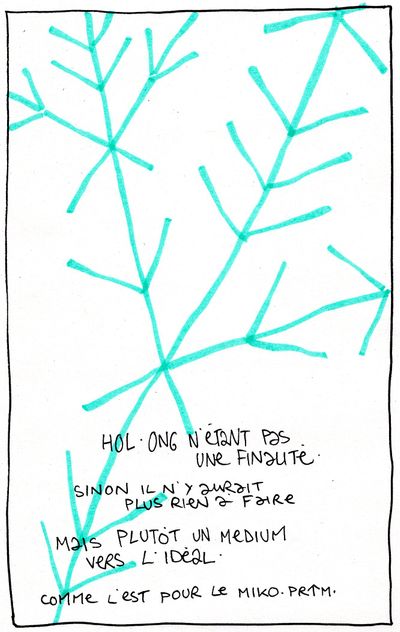 HOL·ONG N'ÉTANT PAS
UNE FINALITÉ.
SINON IL N'Y AURAIT
PLUS RIEN À FAIRE
MAIS PLUTÔT UN MEDIUM
VERS L'IDÉAL.
COMME L'EST POUR LE MIKO.PRTM.